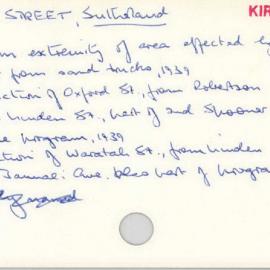 STREET, Sutherland
KIR
extremity of area affected by
from sand trucks, 1939
ction of Oxford St., from Robertson
Linden St., part of 2nd Spooner
program, 1939
ction of Waratah St., from Linden
Jannali Ave. Also part of program